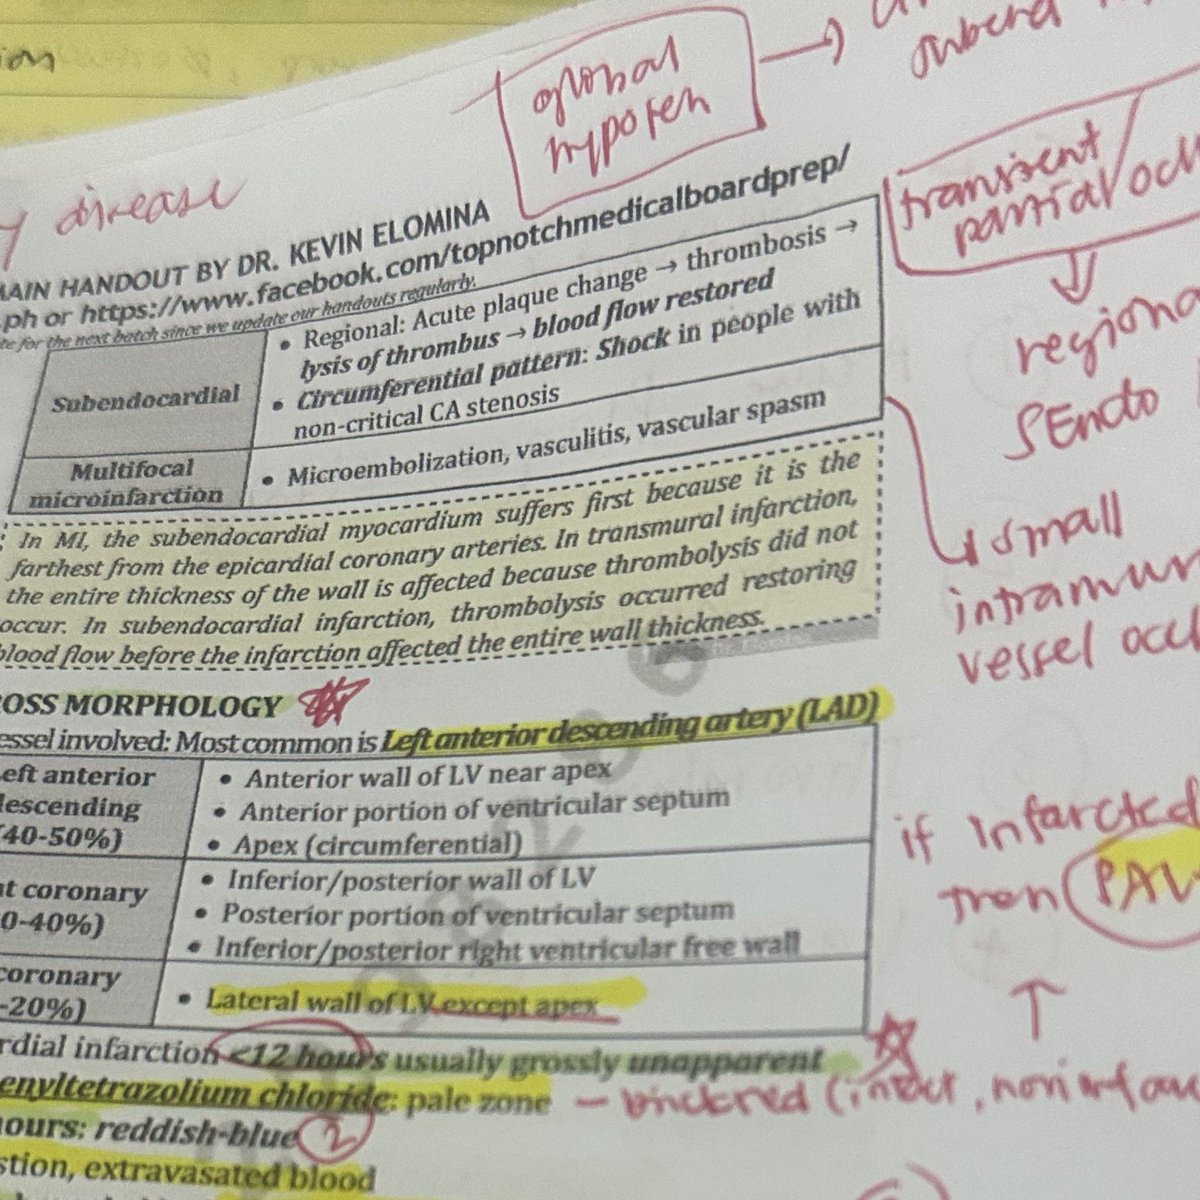 global
hypoten
suben
disease
transient
partial
MAIN HANDOUT BY DR. KEVIN ELOMINA
.ph or https://www.facebook.com/topnotchmedicalboardprep/
for the next batch since we update our handouts regularly.
Subendocardial
• Regional: Acute plaque change → thrombosis →
lysis of thrombus → blood flow restored
• Circumferential pattern: Shock in people with
non-critical CA stenosis
Multifocal
microinfarction
• Microembolization, vasculitis, vascular spasm
regiona
SEndo
small
intramur
vessel occl
: In MI, the subendocardial myocardium suffers first because it is the
farthest from the epicardial coronary arteries. In transmural infarction,
the entire thickness of the wall is affected because thrombolysis did not
occur. In subendocardial infarction, thrombolysis occurred restoring
blood flow before the infarction affected the entire wall thickness.
OSS MORPHOLOGY
essel involved: Most common is Left anterior descending artery (LAD)
eft anterior
descending
(40-50%)
• Anterior wall of LV near apex
• Anterior portion of ventricular septum
• Apex (circumferential)
t coronary
0-40%)
• Inferior/posterior wall of LV
• Posterior portion of ventricular septum
• Inferior/posterior right ventricular free wall
coronary
-20%)
• Lateral wall of LV except apex
if infarcted
then PAL
rdial infarction <12 hours usually grossly unapparent
enyltetrazolium chloride: pale zone – brick red (intact, noninfarc
ours: reddish-blue 2
stion, extravasated blood